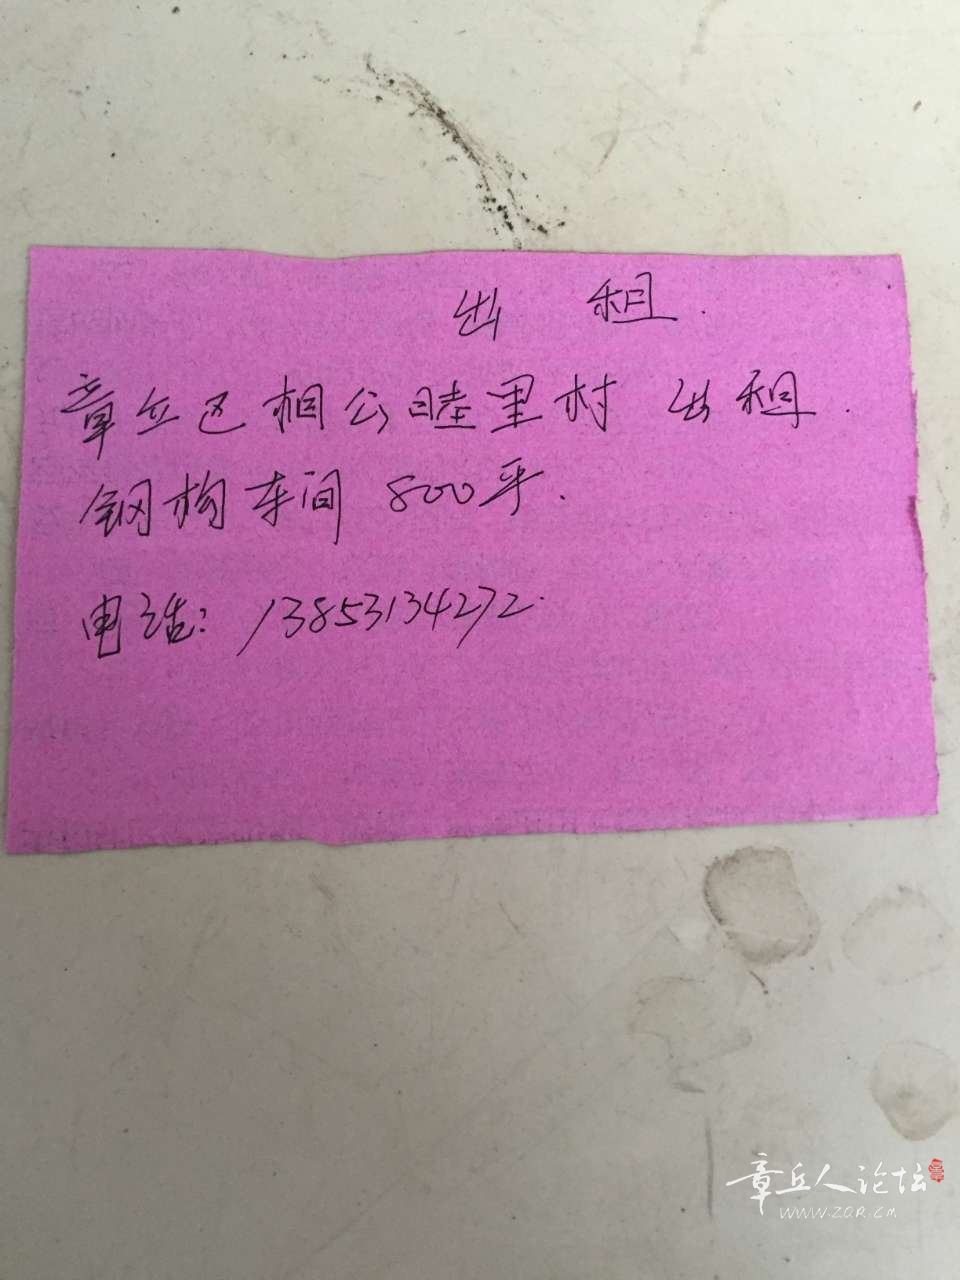 出 租.
章丘区相公睦里村 出租.
钢构车间 800平.
电话: 13853134272.
章丘人论坛
www.ZQR.CM